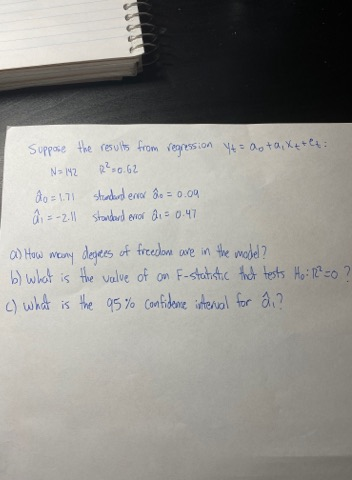 Suppose the results from regression yₜ = a₀ + a₁xₜ + eₜ:
N = 142 R² = 0.62
â₀ = 1.71 standard error â₀ = 0.09
â₁ = -2.11 standard error â₁ = 0.47
a) How many degrees of freedom are in the model?
b) What is the value of an F-statistic that tests H₀: R² = 0?
c) What is the 95% confidence interval for â₁?